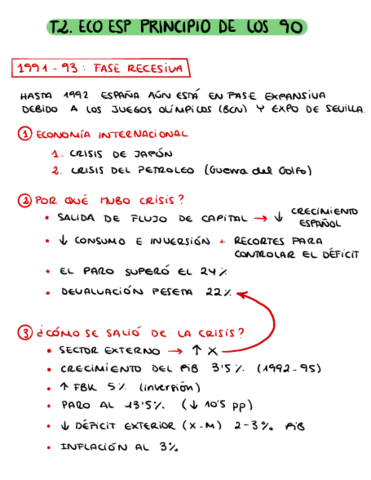 T2. ECO ESP PRINCIPIO DE LOS 90
1991-93: FASE RECESIVA
HASTA 1992 ESPAÑA AÚN ESTÁ EN FASE EXPANSIVA
DEBIDO A LOS JUEGOS OLÍMPICOS (BCN) Y EXPO DE SEVILLA.
① ECONOMÍA INTERNACIONAL
1. CRISIS DE JAPÓN
2. CRISIS DEL PETROLEO (Guerra del Golfo)
② POR QUÉ HUBO CRISIS?
• SALIDA DE FLUJO DE CAPITAL → ↓ CRECIMIENTO
ESPAÑOL
• ↓ CONSUMO E INVERSIÓN + RECORTES PARA
CONTROLAR EL DÉFICIT
• EL PARO SUPERÓ EL 24%
• DEVALUACIÓN PESETA 22%
③ ¿CÓMO SE SALIÓ DE LA CRISIS?
• SECTOR EXTERNO → ↑ X
• CRECIMIENTO DEL PIB 3'5% (1992-95)
• ↑ FBK 5% (inversión)
• PARO AL 13'5% (↓ 10'5 pp)
• ↓ DÉFICIT EXTERIOR (X-M) 2-3% PIB
• INFLACIÓN AL 3%